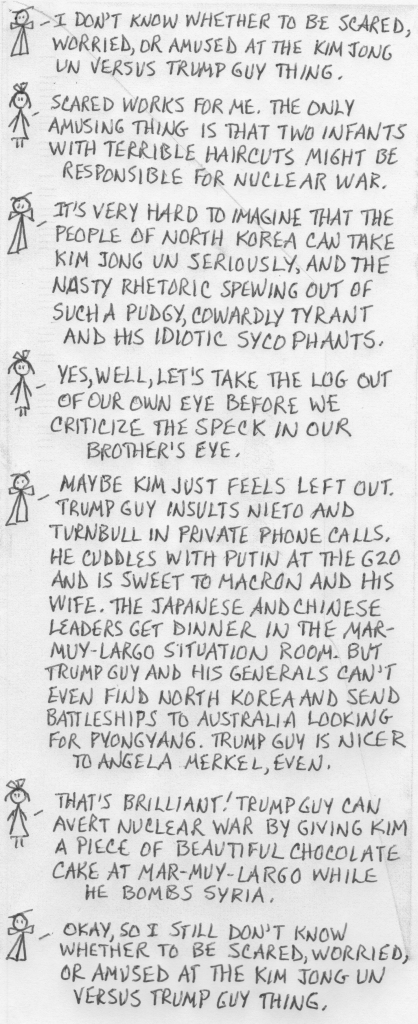 I DON'T KNOW WHETHER TO BE SCARED,
WORRIED, OR AMUSED AT THE KIM JONG
UN VERSUS TRUMP GUY THING.
SCARED WORKS FOR ME. THE ONLY
AMUSING THING IS THAT TWO INFANTS
WITH TERRIBLE HAIRCUTS MIGHT BE
RESPONSIBLE FOR NUCLEAR WAR.
IT'S VERY HARD TO IMAGINE THAT THE
PEOPLE OF NORTH KOREA CAN TAKE
KIM JONG UN SERIOUSLY, AND THE
NASTY RHETORIC SPEWING OUT OF
SUCH A PUDGY, COWARDLY TYRANT
AND HIS IDIOTIC SYCOPHANTS.
YES, WELL, LET'S TAKE THE LOG OUT
OF OUR OWN EYE BEFORE WE
CRITICIZE THE SPECK IN OUR
BROTHER'S EYE.
MAYBE KIM JUST FEELS LEFT OUT.
TRUMP GUY INSULTS NIETO AND
TURNBULL IN PRIVATE PHONE CALLS.
HE CUDDLES WITH PUTIN AT THE G20
AND IS SWEET TO MACRON AND HIS
WIFE. THE JAPANESE AND CHINESE
LEADERS GET DINNER IN THE MAR-
MUY-LARGO SITUATION ROOM. BUT
TRUMP GUY AND HIS GENERALS CAN'T
EVEN FIND NORTH KOREA AND SEND
BATTLESHIPS TO AUSTRALIA LOOKING
FOR PYONGYANG. TRUMP GUY IS NICER
TO ANGELA MERKEL, EVEN.
THAT'S BRILLIANT! TRUMP GUY CAN
AVERT NUCLEAR WAR BY GIVING KIM
A PIECE OF BEAUTIFUL CHOCOLATE
CAKE AT MAR-MUY-LARGO WHILE
HE BOMBS SYRIA.
OKAY, SO I STILL DON'T KNOW
WHETHER TO BE SCARED, WORRIED,
OR AMUSED AT THE KIM JONG UN
VERSUS TRUMP GUY THING.